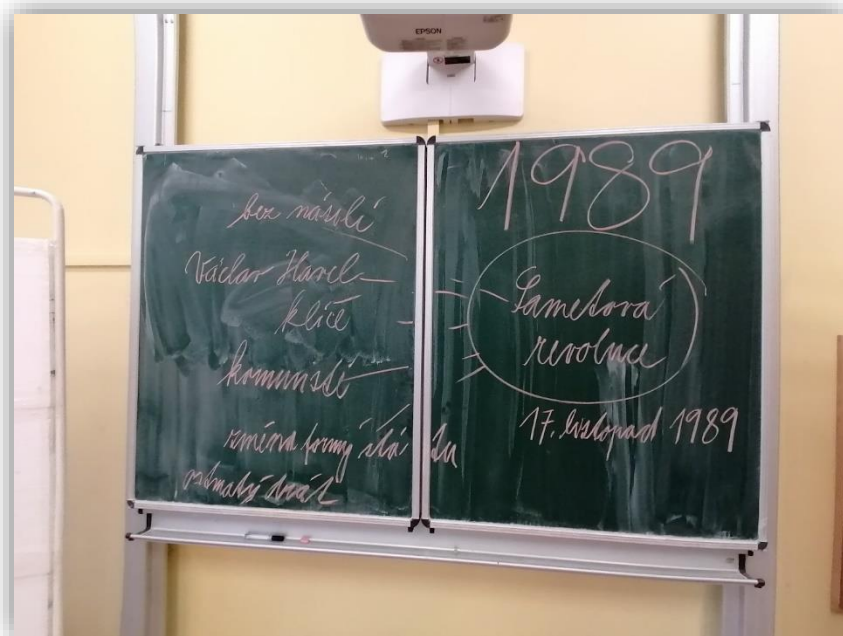 EPSON
bez násilí
Václav Havel
klíče
komunisté
změna formy státu
ostnatý drát
1989
Sametová
revoluce
17. listopad 1989